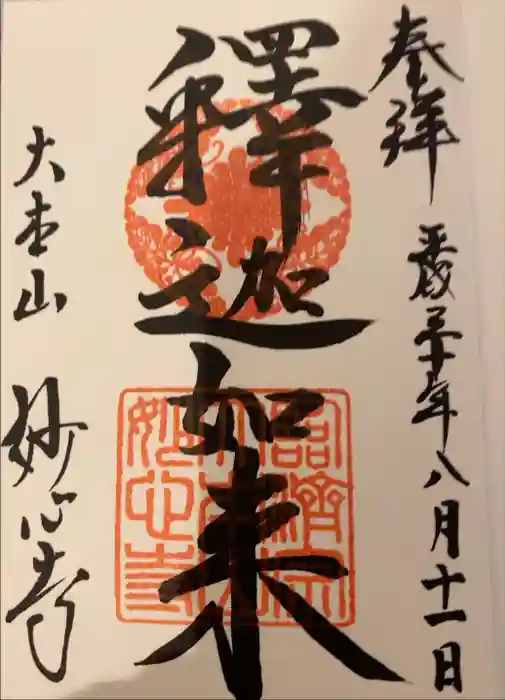 奉拝
平成三十年八月十一日
釋迦如来
大本山 妙心寺
臨濟宗
大本山
妙心寺